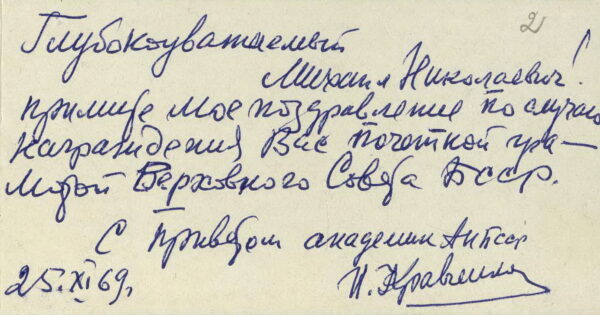 2
Глубокоуважаемый
Михаил Николаевич!
примите мое поздравление по случаю
награждения Вас Почетной гра-
мотой Верховного Совета БССР.
С приветом академик АН БССР
25.XI 69. И. Кравченко